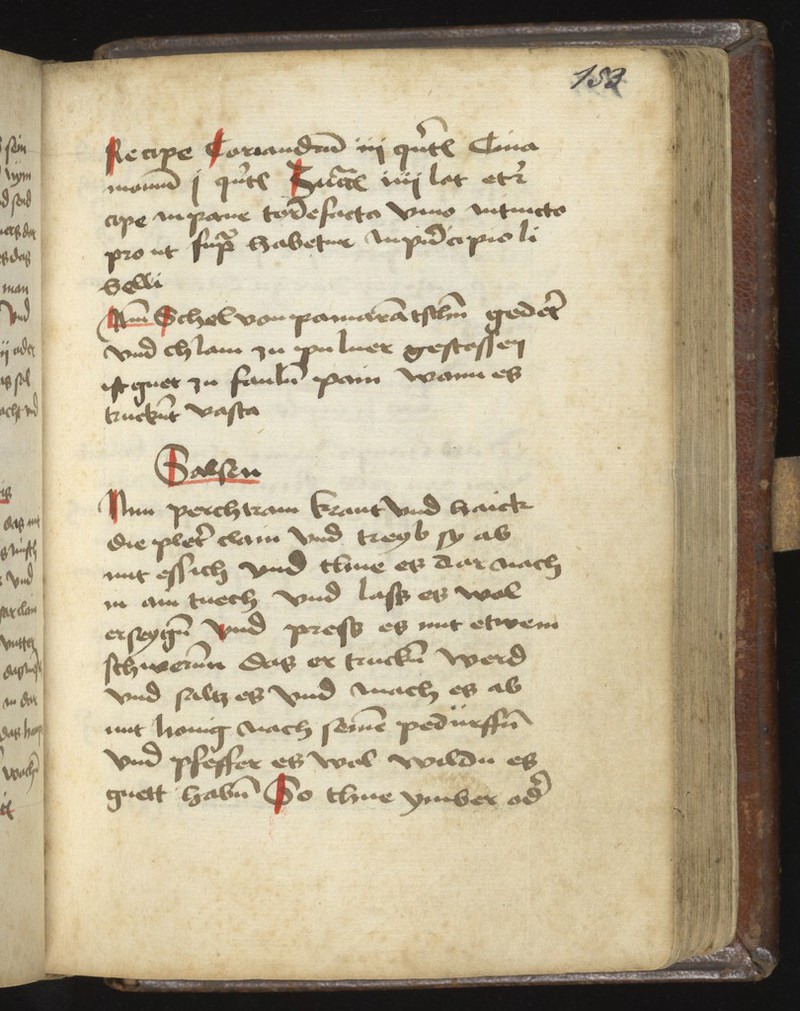 153
Recipe Coriandru͂ iij qͥrtl Cina
momu͂ j qͥrtl Zucͣe iiij lot
cipe in pane torefacto vino intincto
pro ut supᷓ habetur in pͥncipio li
belli
Nim Schel von pamarātschn̄ gederͬ
vnd chlain zu puluer gestossen
ist guet zu fauln̄ pain wann es
truckn̄t vasta
Salsen
Nim perchtram kraut vnd haick
die pletͬ clain vnd treyb sy ab
mit essich vnd thue es dar nach
in ain tuech vnd lass es wol
erseygn̄ vnd press es mit etwem
schwerm̄ das er truckn̄ werd
vnd saltz es vnd mach es ab
mit honig nach seine͂ pedürffn̄
vnd pfeffer es wol wildu es
guett habn̄ So thue ymber odͬ